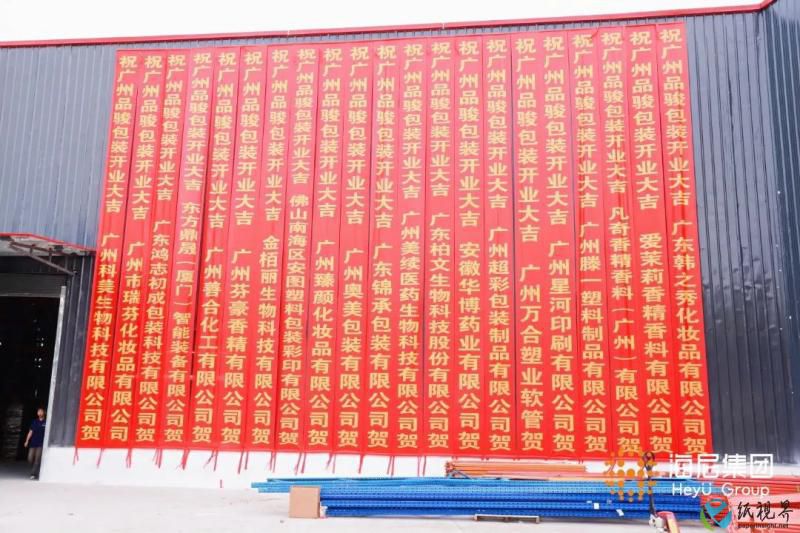 祝广州品骏包装开业大吉 广州科美生物科技有限公司贺
祝广州品骏包装开业大吉 广州市瑞芬化妆品有限公司贺
祝广州品骏包装开业大吉 广东鸿志初成包装科技有限公司贺
祝广州品骏包装开业大吉 东方鼎晟（厦门）智能装备有限公司贺
祝广州品骏包装开业大吉 广州普合化工有限公司贺
祝广州品骏包装开业大吉 广州芬豪香精有限公司贺
祝广州品骏包装开业大吉 金栢丽生物科技有限公司贺
祝广州品骏包装开业大吉 佛山南海区安图塑料包装彩印有限公司贺
祝广州品骏包装开业大吉 广州臻颜化妆品有限公司贺
祝广州品骏包装开业大吉 广州奥美包装有限公司贺
祝广州品骏包装开业大吉 广东锦承包装有限公司贺
祝广州品骏包装开业大吉 广州美续医药生物科技有限公司贺
祝广州品骏包装开业大吉 广东柏文生物科技股份有限公司贺
祝广州品骏包装开业大吉 安徽华博药业有限公司贺
祝广州品骏包装开业大吉 广州超彩包装制品有限公司贺
祝广州品骏包装开业大吉 广州万合塑业软管贺
祝广州品骏包装开业大吉 广州星河印刷有限公司贺
祝广州品骏包装开业大吉 广州滕一塑料制品有限公司贺
祝广州品骏包装开业大吉 凡奇香精香料（广州）有限公司贺
祝广州品骏包装开业大吉 爱茉莉香精香料有限公司贺
祝广州品骏包装开业大吉 广东韩之秀化妆品有限公司贺
集团
HeyÜ Group
纸视界
paperinsight.net